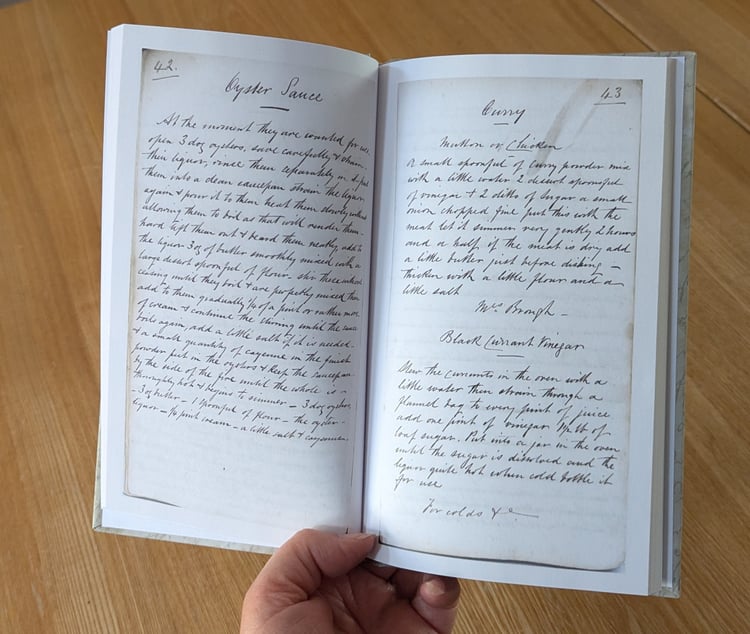 42.
Oyster Sauce
At the moment they are wanted for use
open 3 doz oysters, save carefully & strain
their liquor, rinse them separately in it put
them into a clean saucepan strain the liquor
again & pour it to them heat them slowly without
allowing them to boil as that will render them
hard lift them out & beard them neatly, add to
the liquor 3 oz of butter smoothly mixed with a
large desert spoonful of flour. stir these without
ceasing until they boil & are perfectly mixed then
add to them gradually 1/4 of a pint or rather more
of cream & continue the stirring until the sauce
boils again, add a little salt if it is needed
& a small quantity of cayenne in the finest
powder put in the oysters & keep the saucepan
by the side of the fire until the whole is
thoroughly hot & begins to simmer – 3 doz oysters
– 3 oz butter – 1 spoonful of flour – the oyster
liquor – pint cream – a little salt & cayenne
43
Curry
Mutton or Chicken
A small spoonful of curry powder mix
with a little water 2 desert spoonsful
of vinegar & 2 ditto of sugar a small
onion chopped fine put this with the
meat let it simmer very gently 2 hours
and a half, if the meat is dry add
a little butter just before dishing –
thicken with a little flour and a
little salt
Mrs Brough –
Black Currant Vinegar
Stew the currants in the oven with a
little water then strain through a
flannel bag to every pint of juice
add one pint of vinegar of
loaf sugar. Put into a jar in the oven
until the sugar is dissolved and the
liquor quite hot when cold bottle it
for use
For colds &c